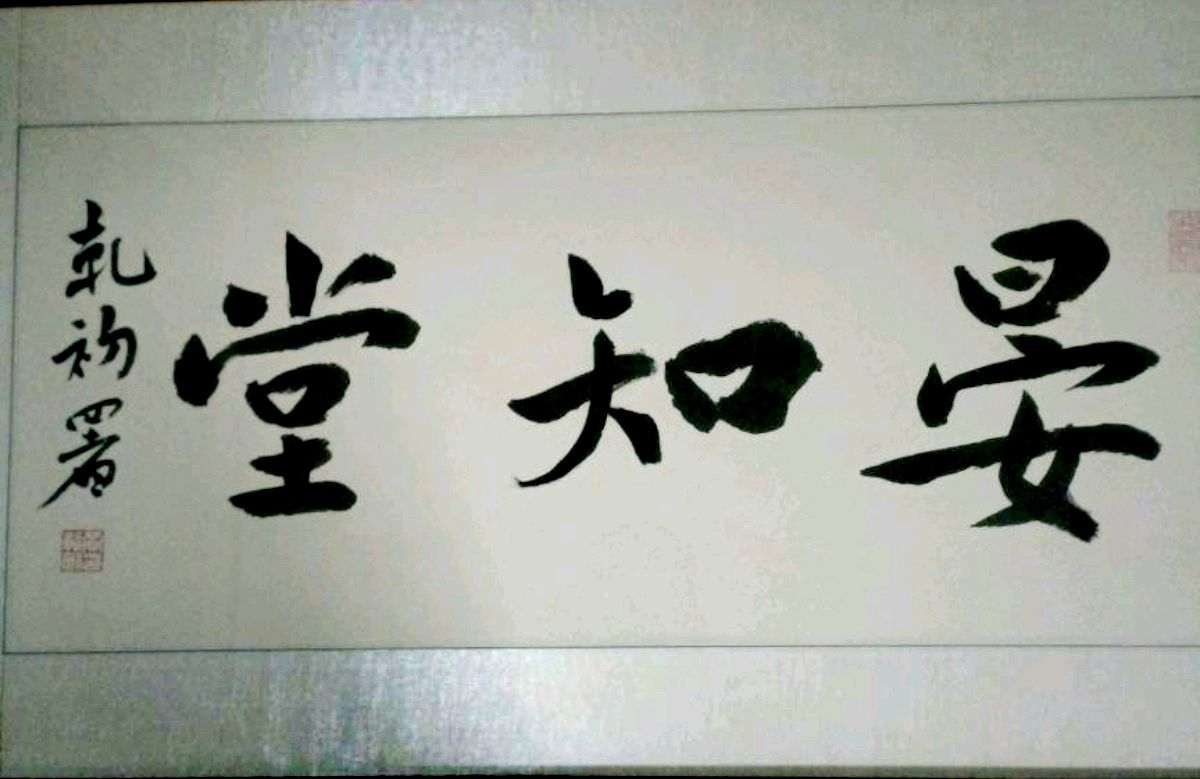 晏知堂
乾初署